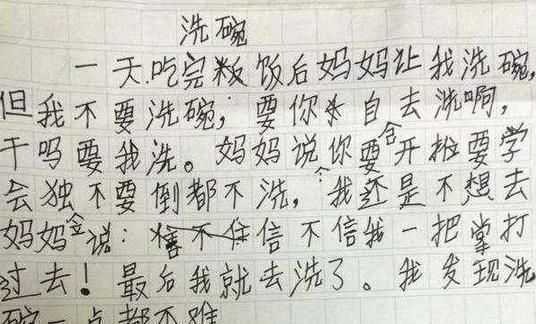 洗碗
一天吃完粄饭后妈妈让我洗碗,
但我不要洗碗,要你自去洗啊,
干吗要我洗。妈妈说你要会开始要学
会独不要倒都不洗,我还是不想去
妈妈说:信不信我一把掌打
过去!最后我就去洗了。我发现洗
碗一点都不难